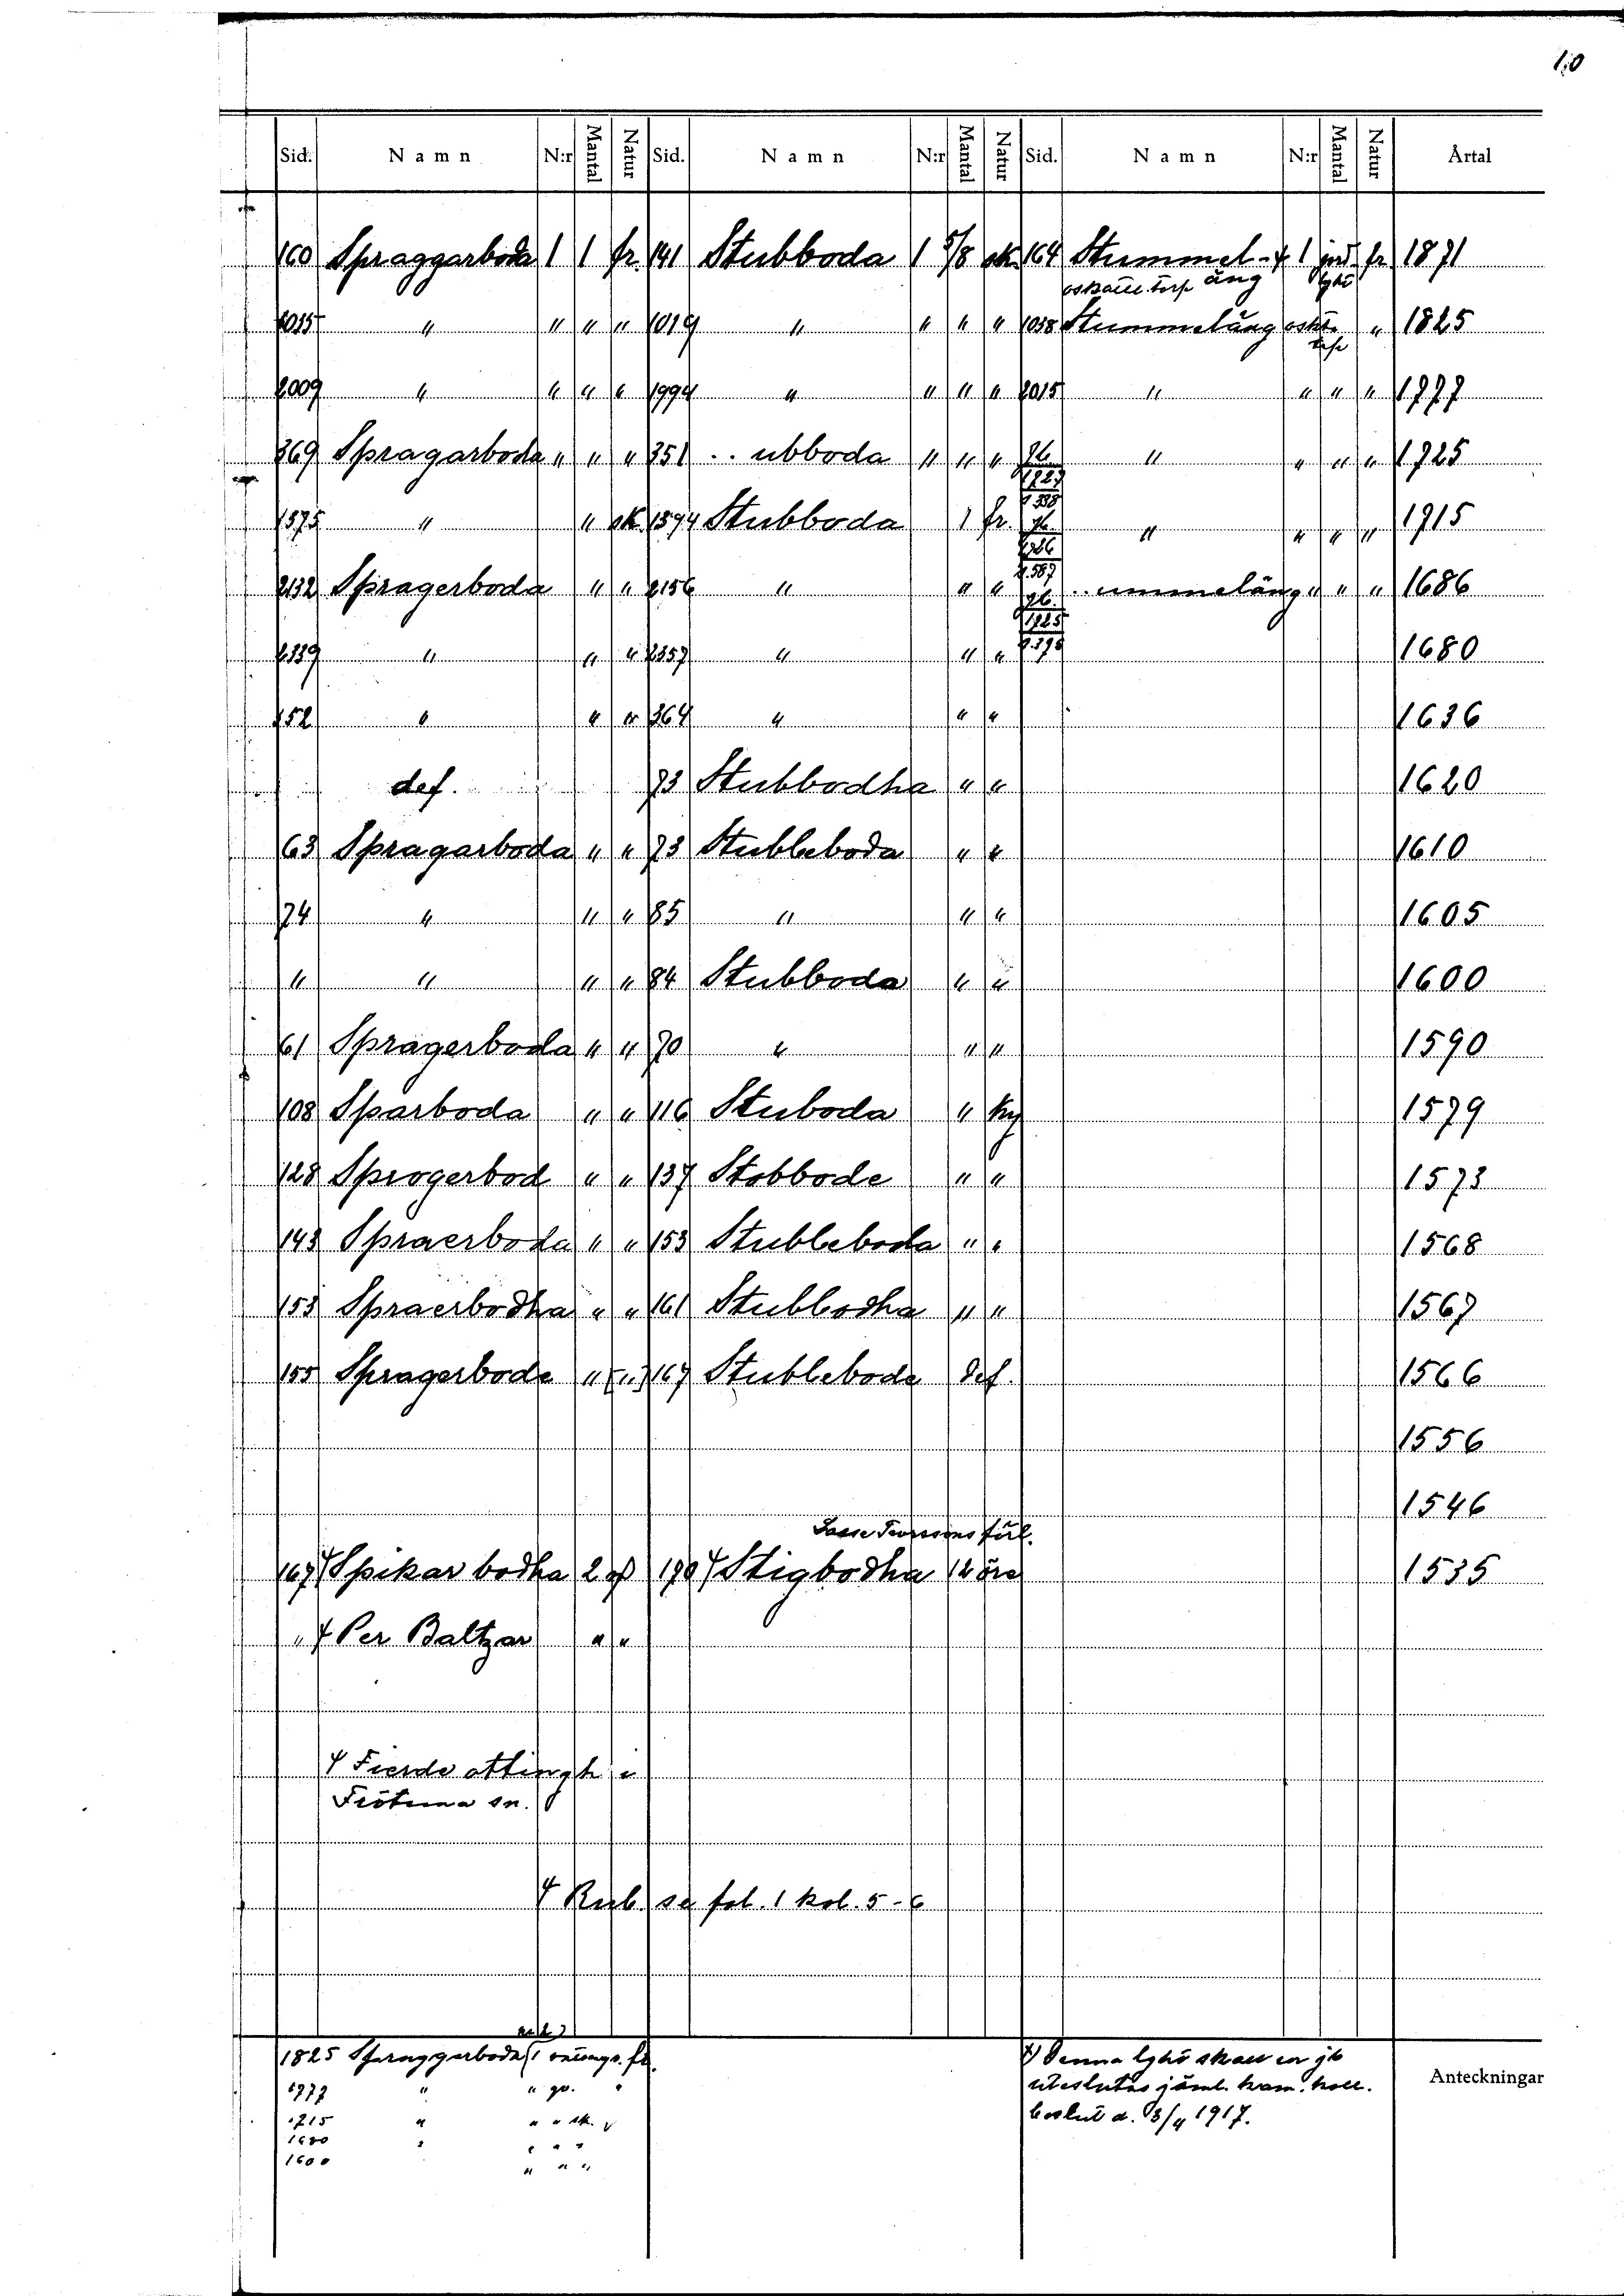 10
Sid. Namn N:r Mantal Natur Sid. Namn N:r Mantal Natur Sid. Namn N:r Mantal Natur Årtal
160 Spraggarboda 1 1 fr. 141 Stubboda 1 5/8 sk. 164 Stummel- 1 jord fr. 1871
äng lght
1035 " " " " 1019 " " " " 1038 Stummeläng " 1825
torp
2009 " " " " 1994 " " " " 2015 " " " " 1777
369 Spragarboda " " " 351 .. ubboda " " " " " " " 1725
1575 " " sk. 1594 Stubboda 1 fr. " " " " 1715
2132 Spragerboda " " 2156 " " " .. ummeläng " " " 1686
1339 " " " 1357 " " " 1680
152 " " " 364 " " " 1636
def. 73 Stubbodha " " 1620
63 Spragarboda " " 73 Stubbeboda " " 1610
74 " " " 85 " " " 1605
" " " " 84 Stubboda " " 1600
61 Spragerboda " " 70 " " " 1590
108 Sparboda " " 116 Stuboda " ky 1579
128 Sprogerbod " " 137 Stobbode " " 1573
143 Spraerboda " " 153 Stubbeboda " " 1568
153 Spraerbodha " " 161 Stubbodha " " 1567
155 Spragerbode " ["] 167 Stubbebode def. 1566
1556
1546
förl.
167 Spikar bodha 2 190 Stigbodha 12 öre 1535
" Per Baltzar " "
Fierde attingh i
Frötuna sn.
Rub. se fol. 1 kol. 5-6
1825 Spraggarboda 1 fr.
1777 " " "
1715 " " " sk.
1680 " " " "
1600 " " "
Denna lght skall ur jb
uteslutas jäml. kam. koll.
beslut d. 13/4 1917.
Anteckningar